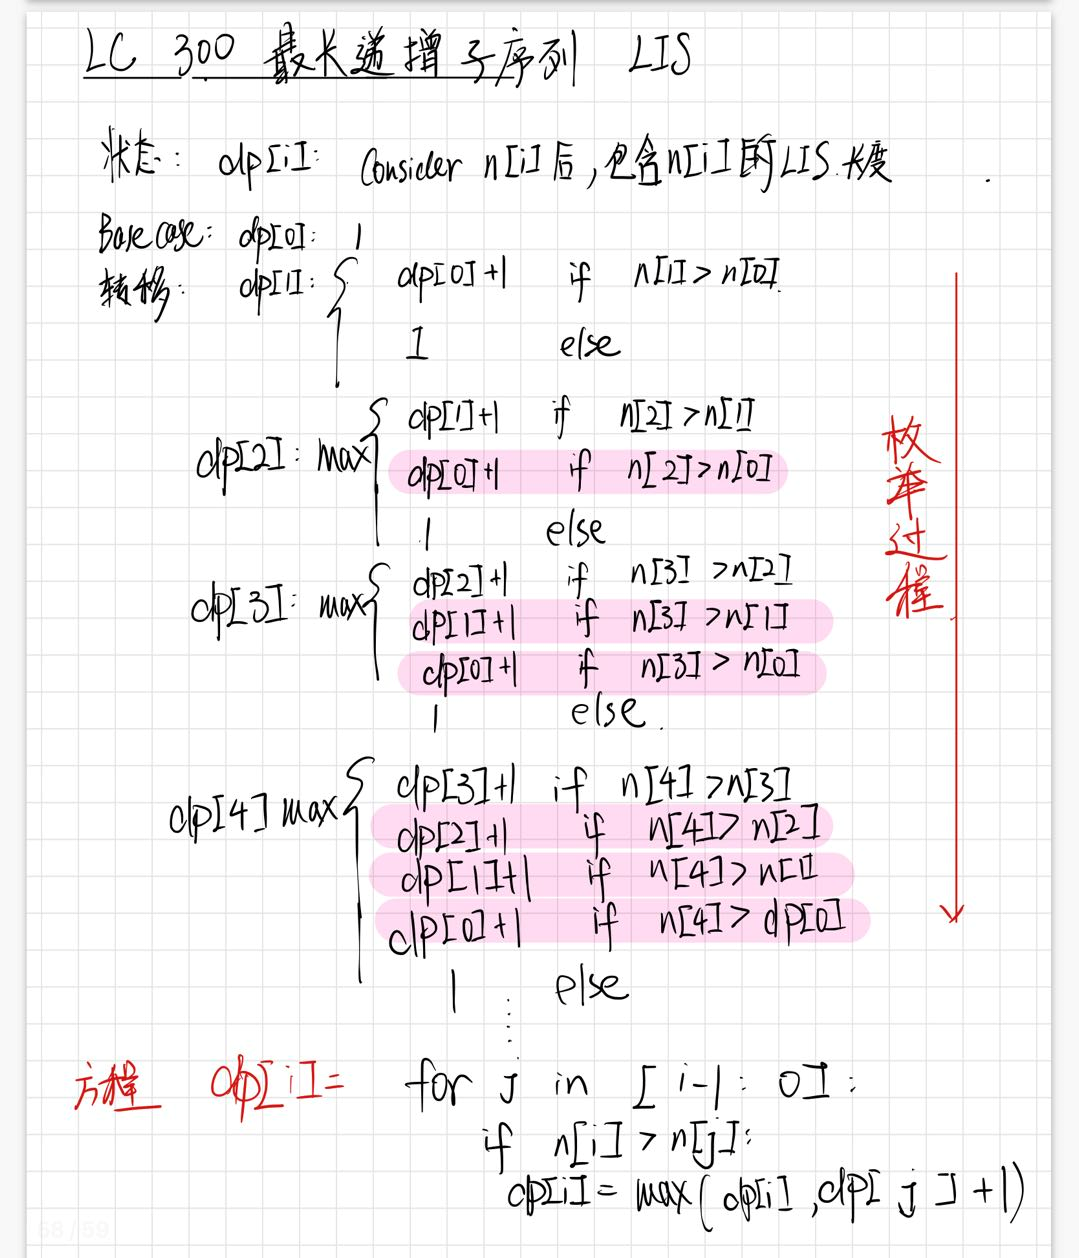 LC 300 最长递增子序列 LIS
状态: dp[i]: Consider n[i]后,包含n[i]的LIS.长度
Base case: dp[0]: 1
转移: dp[1]: { dp[0]+1 if n[1] > n[0]
1 else
dp[2]: max { dp[1]+1 if n[2] > n[1]
dp[0]+1 if n[2] > n[0]
1 else
dp[3]: max { dp[2]+1 if n[3] > n[2]
dp[1]+1 if n[3] > n[1]
dp[0]+1 if n[3] > n[0]
1 else.
dp[4] max { dp[3]+1 if n[4] > n[3]
dp[2]+1 if n[4] > n[2]
dp[1]+1 if n[4] > n[1]
dp[0]+1 if n[4] > dp[0]
1 else
枚举过程
方程 dp[i]= for j in [i-1: 0]:
if n[i] > n[j]:
dp[i] = max(dp[i],dp[j]+1)
58 / 59